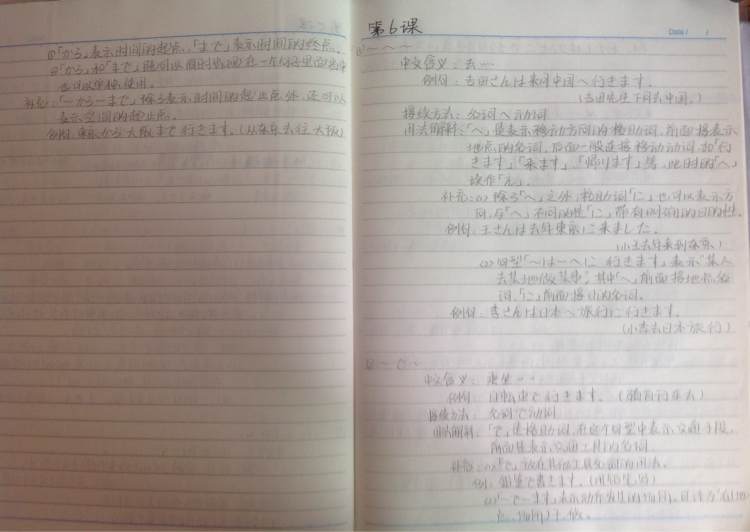 ①「から」表示时间的起点,「まで」表示时间的终点。
②「から」和「まで」既可以同时出现在一个句子里面
也可以单独使用。
补充:「~から~まで」除了表示时间的起止点外,还可以
表示空间的起止点。
例句:東京から大阪まで行きます。(从东京去往大阪)
第6课
Date / /
① ~へ~
中文含义:去……
例句:吉田さんは来月中国へ行きます。
(吉田先生下个月去中国。)
接续方法:名词へ动词
用法解释:「へ」是表示移动方向的格助词,前面接表示
地点的名词,后面一般连接移动动词,如「行
きます」「来ます」「帰ります」等,此时的「へ」
读作「え」。
补充:(1)除了「へ」之外,格助词「に」也可以表示方
向,与「へ」不同的是「に」带有明确的目的性。
例句:王さんは去年東京に来ました。
(小王去年来到东京)
(2)句型「~は~へ~に 行きます」表示"某人
去某地做某事",其中「へ」前面接地点名
词,「に」前面接目的名词。
例句:李さんは日本へ旅行に行きます。
(小李去日本旅行)
② ~で~
中文含义:乘坐……
例句:自転車で行きます。(骑自行车去)
接续方法:名词で动词
用法解释:「で」是格助词,在这个句型中表示交通手段,
前面接表示交通工具的名词
补充:(1)「で」
例:鉛筆で書きます。(用铅笔写)
(2)「~で~ます」表示动作发生的场所,